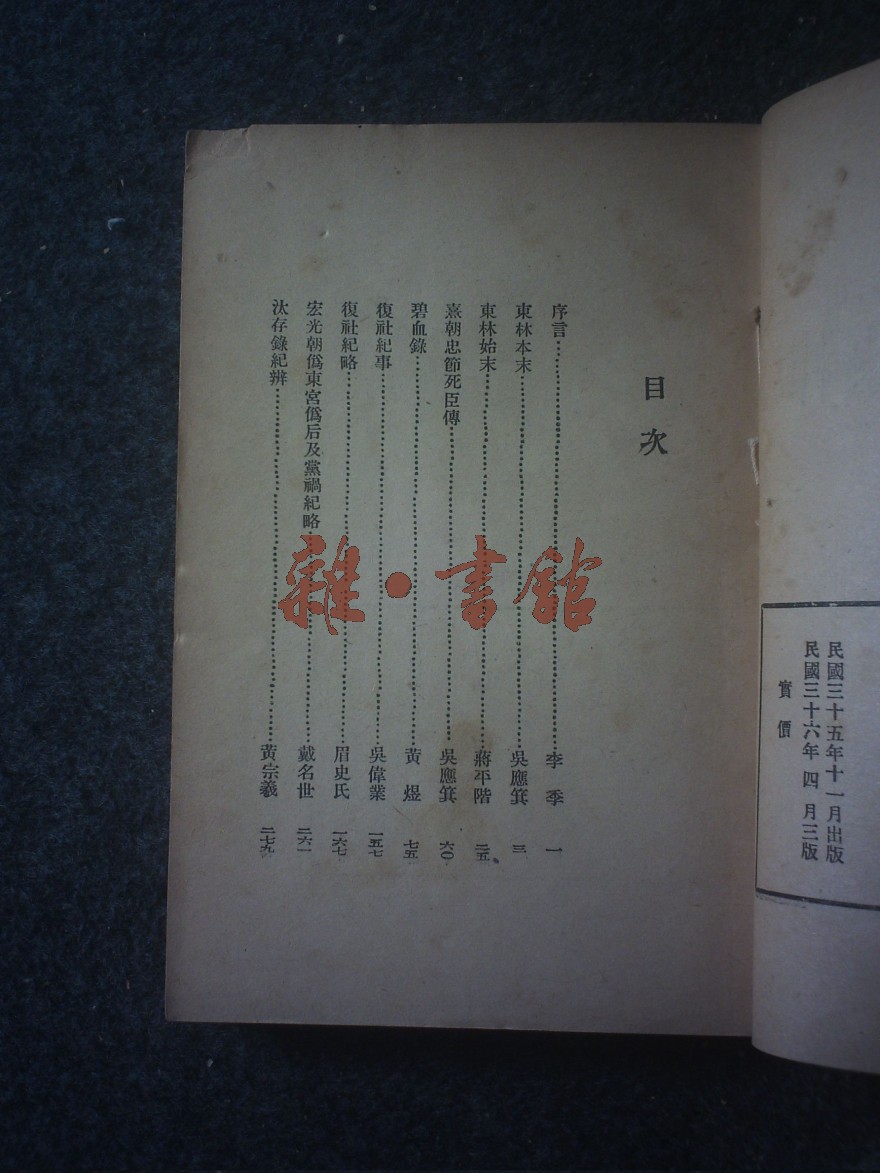 民國三十五年十一月出版
民國三十六年四月三版
實價
目次
序言 李季 一
東林本末 吳應箕 三
東林始末 蔣平階 二五
熹朝忠節死臣傳 吳應箕 六〇
碧血錄 黃煜 七五
復社紀事 吳偉業 一五七
復社紀略 眉史氏 一六七
宏光朝僞東宮僞后及黨禍紀略 戴名世 二六一
汰存錄紀辨 黃宗羲 二七九
雜·書館